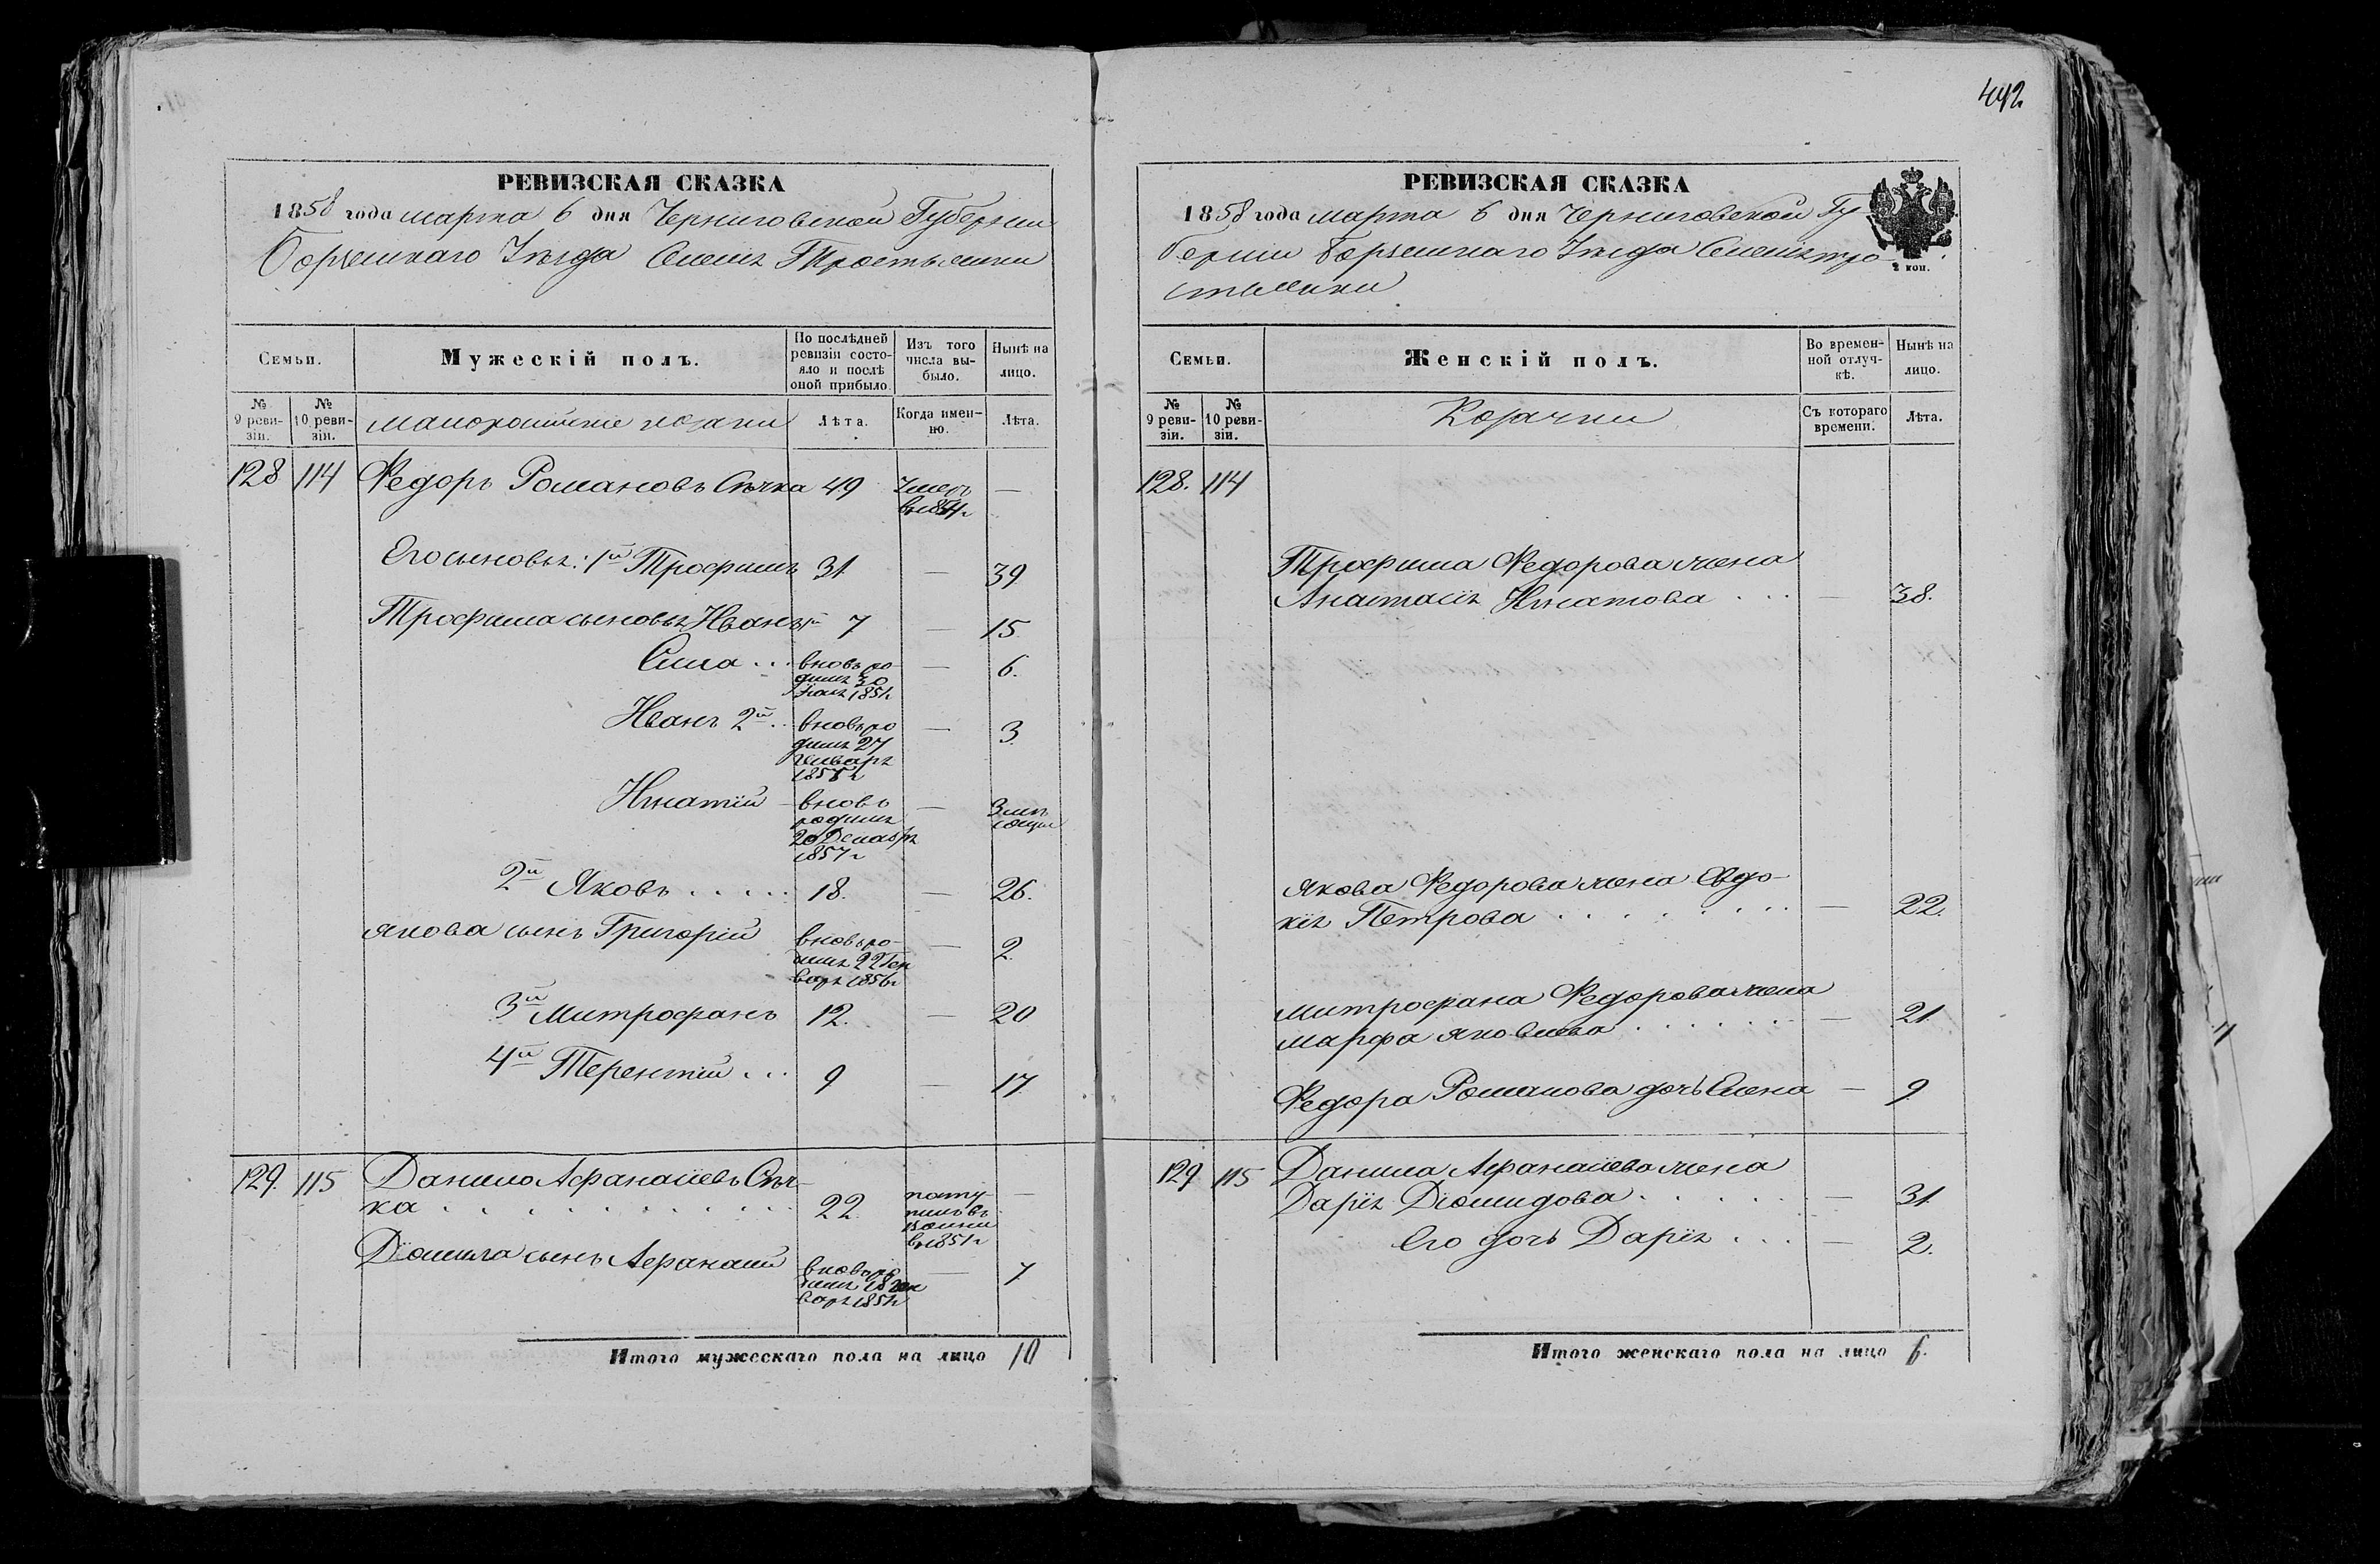 492
РЕВИЗСКАЯ СКАЗКА
1858 года марта 6 дня Черниговской Губернии
Борзенскаго Уезда Тростянки
Семьи.
Мужескій полъ.
По послѣдней ревизіи состояло и послѣ оной прибыло.
Изъ того числа выбыло.
Нынѣ на лицо.
№ 9 ревизіи.
№ 10 ревизіи.
малороссийские козаки
Лѣта.
Когда именно.
Лѣта.
128 114 Федоръ Романовъ Сѣчка 49 Умеръ въ 1854 г —
Его сыновья: 1й Трофимъ 31 — 39
Трофима сыновья Иванъ 1й 7 — 15
Сила . . . вновь родился 30 1851 г — 6.
Иванъ 2й . . вновь родился 27 Генваря 1855 г — 3
Игнатій — вновь родился 20 Декабря 1857 г — 3 месяца
2й Яковъ . . . . . 18. — 26.
Якова сынъ Григорій вновь родился 22 Генваря 1856 г — 2
3й Митрофанъ 12. — 20
4й Терентій . . . 9 — 17
129. 115 Данило Афанасіевъ Сѣч-
ка . . . . . . . . . . 22 поступилъ въ въ 1851 г —
Данила сынъ Афанасій вновь родился 18 Генваря 1851 г — 7
Итого мужескаго пола на лицо 10
РЕВИЗСКАЯ СКАЗКА
1858 года марта 6 дня Черниговской Гу-
берніи Борзенскаго Уезда Тро-
стянки
2 коп.
Семьи.
Женскій полъ.
Во временной отлучкѣ.
Нынѣ на лицо.
№ 9 ревизіи.
№ 10 ревизіи.
Козачки
Съ котораго времени.
Лѣта.
128. 114
Трофима Федорова жена
Анастасія Игнатова . . . — 38.
Якова Федорова жена Евдо-
кія Петрова . . . . . . . . — 22.
Митрофана Федорова жена
Марфа Яковлева . . . . . . — 21
Федора Романова дочь Елена — 9
129 115 Данила Афанасіева жена
Дарія Діомидова . . . . . . — 31
Его дочь Дарія . . . — 2.
Итого женскаго пола на лицо 6.